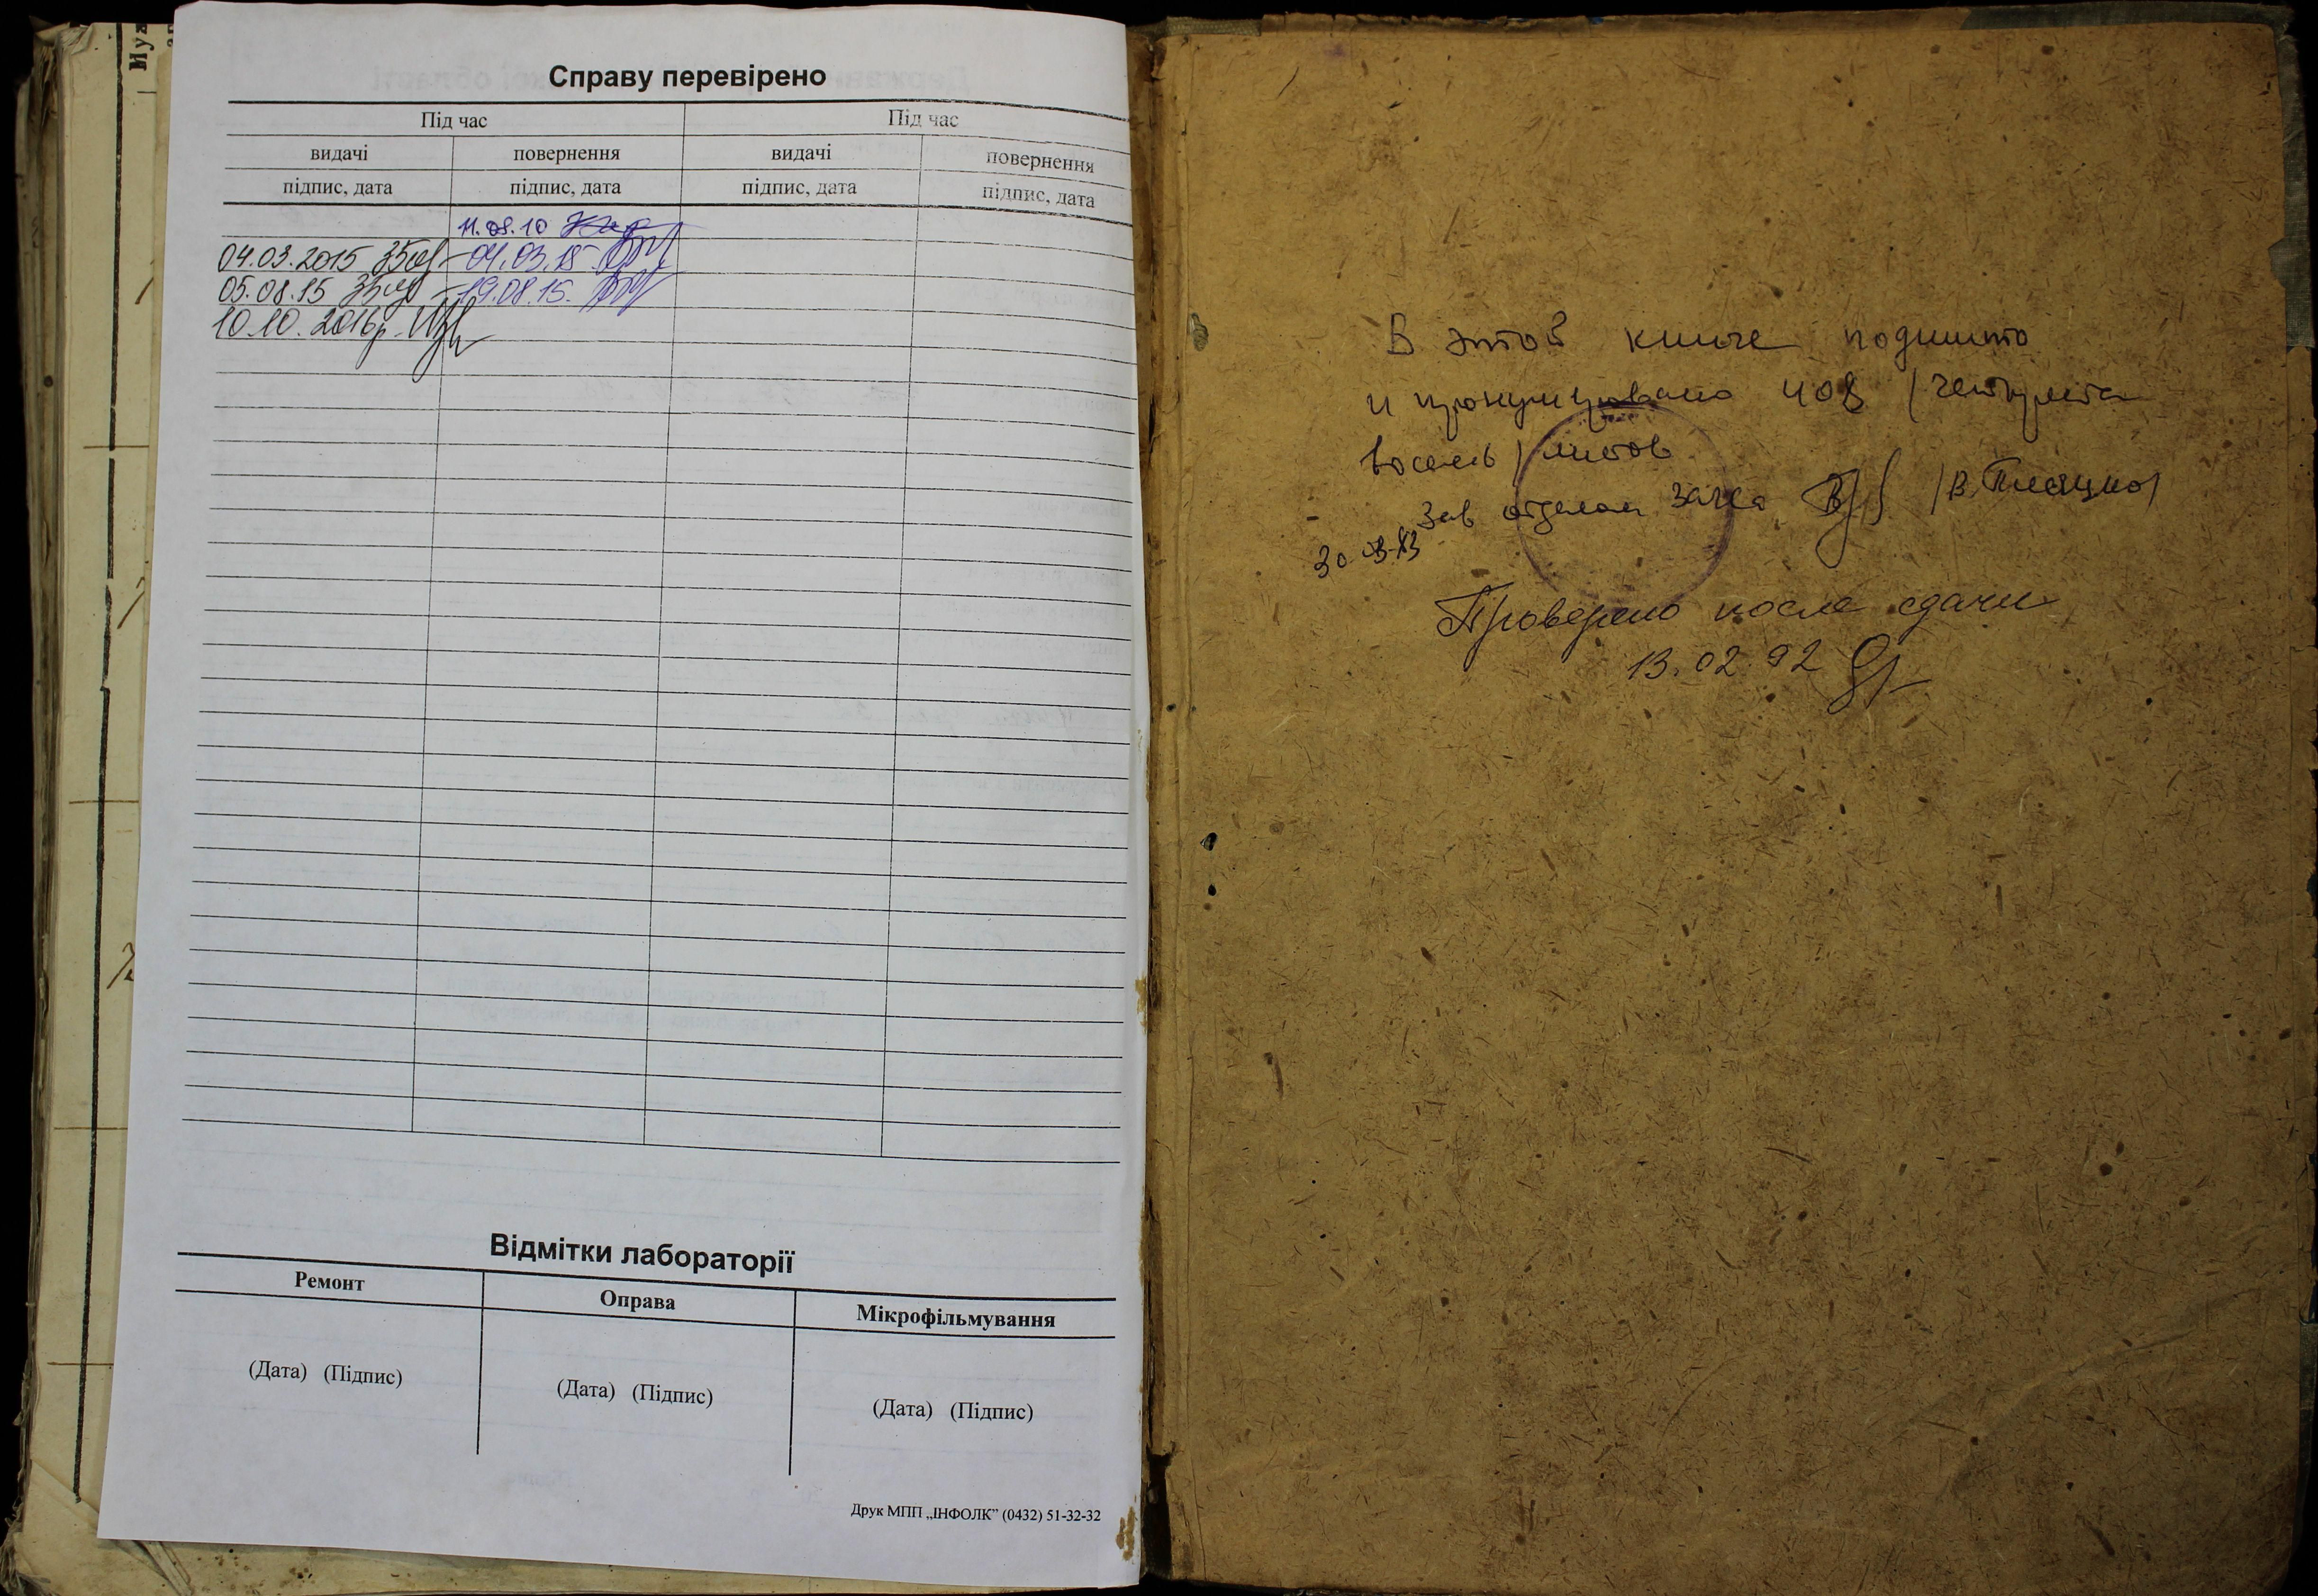 Справу перевірено
Під час Під час
видачі повернення видачі повернення
підпис, дата підпис, дата підпис, дата підпис, дата
11.08.10
04.03.2015 04.03.15
05.08.15 19.08.15.
10.10.2016р.
Відмітки лабораторії
Ремонт Оправа Мікрофільмування
(Дата) (Підпис) (Дата) (Підпис) (Дата) (Підпис)
Друк МПП „ІНФОЛК” (0432) 51-32-32
В этой книге подшито
и пронумировано 408 / четыреста
восемь / листов
Зав отделом загса
Проверено после сдачи
13.02.92